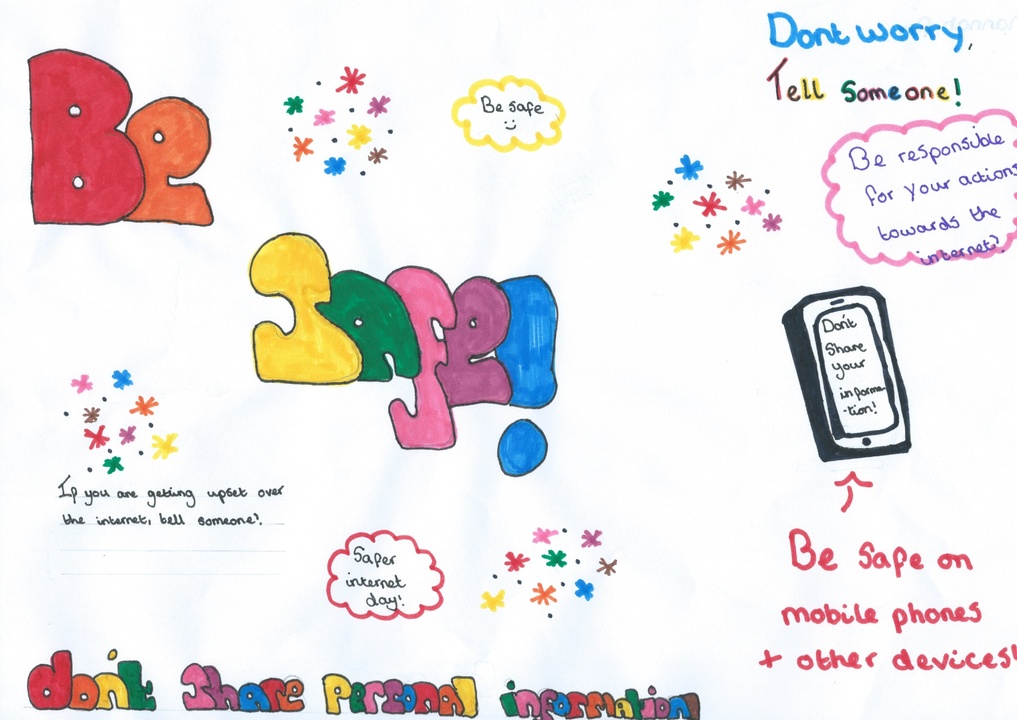 Be
Safe!
Be safe
Dont worry,
Tell Someone!
Be responsible
for your actions
towards the
internet?
Don't
Share
your
informa-
-tion!
If you are getting upset over
the internet, tell someone?.
Safer
internet
day!
Be Safe on
mobile phones
+ other devices!
don't Share Personal information